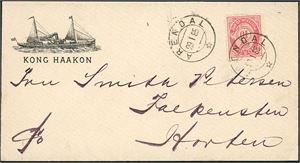 KONG HAAKON
ARENDAL
ARENDAL
Fru Smith Petersen
Falkensten
Horten